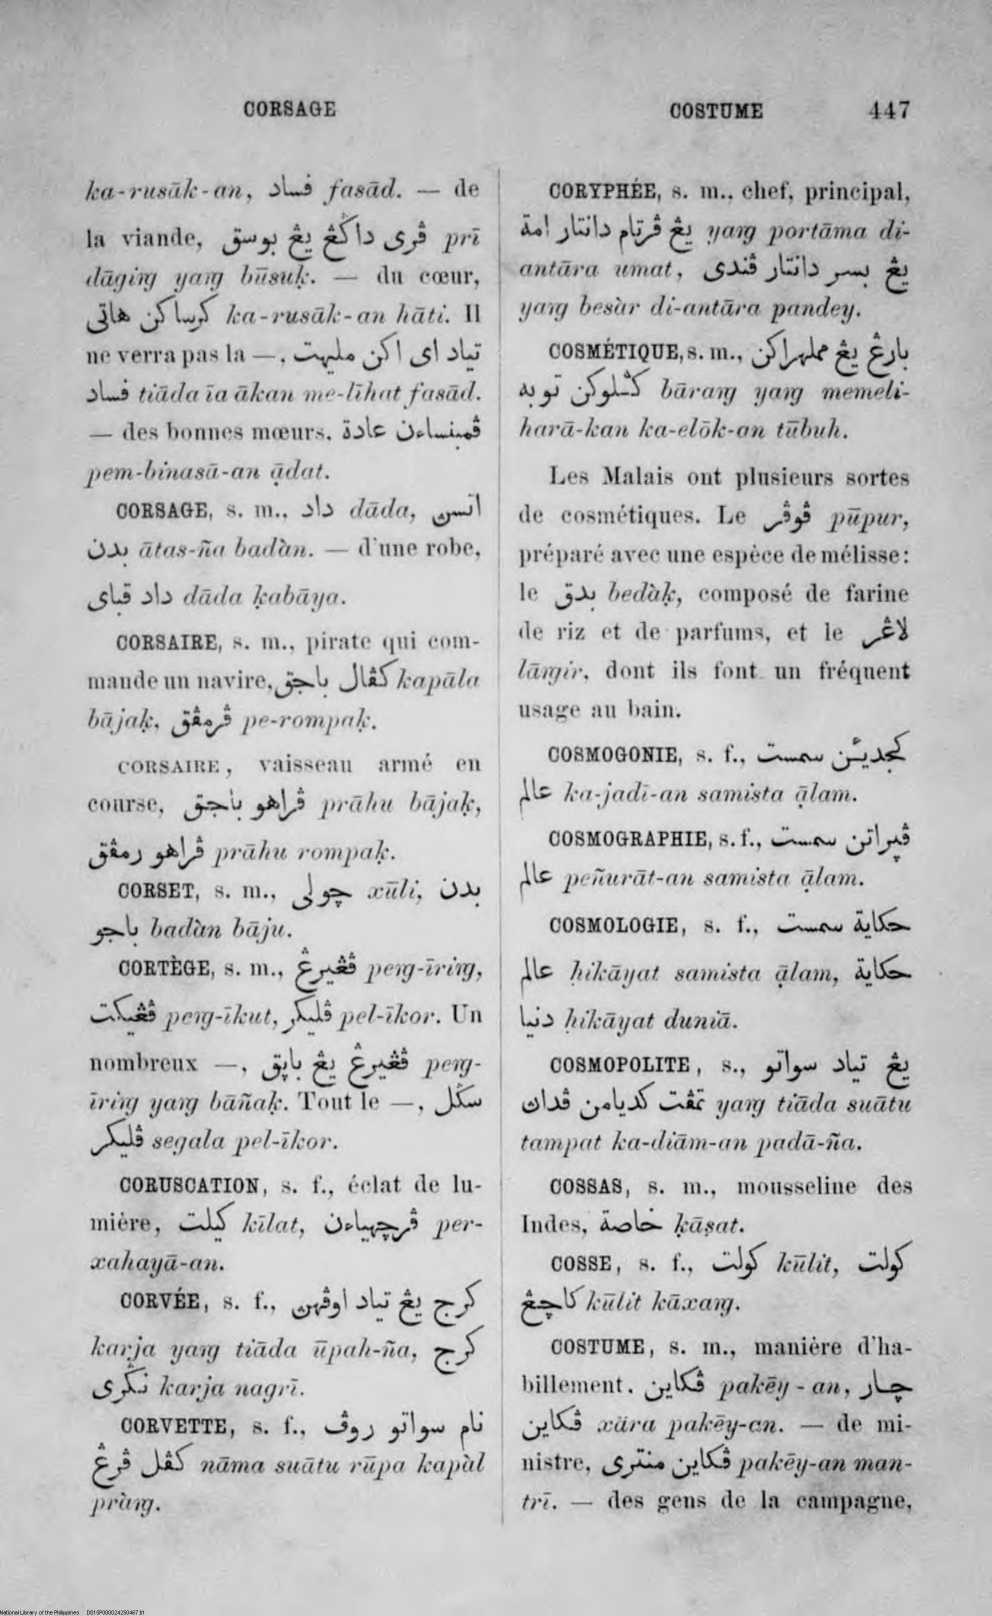 CORSAGE
COSTUME 447
ka-rusāk-an, فساد fasād. — de
la viande, ڤرى داڬڠ يڠ بوسق prī
dāgiŋ yaŋ būsuḳ. — du cœur,
كرساكن هاتى ka-rusāk-an hāti. Il
ne verra pas la —, تياد اى اكن مليهت
فساد tiāda īa ākan me-līhat fasād.
— des bonnes mœurs, ڤمبنساءن عادة
pem-binasā-an ạ̄dat.
CORSAGE, s. m., داد dāda, اتسن
بدن ātas-ña badàn. — d'une robe,
داد قباى dāda ḳabāya.
CORSAIRE, s. m., pirate qui com-
mande un navire, كڤال باجق kapāla
bājaḳ, ڤرمڤق pe-rompaḳ.
CORSAIRE, vaisseau armé en
course, ڤراهو باجق prāhu bājaḳ,
ڤراهو رمڤق prāhu rompaḳ.
CORSET, s. m., چولى xūli, بدن
باجو badàn bāju.
CORTÈGE, s. m., ڤڠيرڠ peŋ-īriŋ,
ڤڠيكت peŋ-īkut, ڤليكر pel-īkor. Un
nombreux —, ڤڠيرڠ يڠ باڽق peŋ-
īriŋ yaŋ bāñaḳ. Tout le —, سڬل
ڤليكر segala pel-īkor.
CORUSCATION, s. f., éclat de lu-
mière, كيلت kīlat, ڤرچهياءن per-
xahayā-an.
CORVÉE, s. f., كرج يڠ تياد اوڤهن
karja yaŋ tiāda ūpah-ña, كرج
نڬرى karja nagrī.
CORVETTE, s. f., نام سواتو روڤ
كڤل ڤرڠ nāma suātu rūpa kapàl
pràŋ.
CORYPHÉE, s. m., chef, principal,
يڠ ڤرتام دانتار امة yaŋ portāma di-
antāra umat, يڠ بسر دانتار ڤندى
yaŋ besàr di-antāra pandey.
COSMÉTIQUE, s. m., بارڠ يڠ مملهراكن
كئلوكن توبه bāraŋ yaŋ memeli-
harā-kan ka-elōk-an tūbuh.
Les Malais ont plusieurs sortes
de cosmétiques. Le ڤوڤر pūpur,
préparé avec une espèce de mélisse:
le بدق bedàḳ, composé de farine
de riz et de parfums, et le لاڠر
lāŋir, dont ils font un fréquent
usage au bain.
COSMOGONIE, s. f., كجديئن سمست
عالم ka-jadī-an samista ạ̄lam.
COSMOGRAPHIE, s. f., ڤڽراتن سمست
عالم peñurāt-an samista ạ̄lam.
COSMOLOGIE, s. f., حكاية سمست
عالم ḥikāyat samista ạ̄lam, حكاية
دنيا ḥikāyat duniā.
COSMOPOLITE, s., يڠ تياد سواتو
تمڤت كديامن ڤداڽ yaŋ tiāda suātu
tampat ka-diām-an padā-ña.
COSSAS, s. m., mousseline des
Indes, خاصة ḳāṣat.
COSSE, s. f., كولت kūlit, كولت
كاچڠ kūlit kāxaŋ.
COSTUME, s. m., manière d'ha-
billement, ڤكاين pakēy-an, چار
ڤكاين xāra pakēy-an. — de mi-
nistre, ڤكاين منترى pakēy-an man-
trī. — des gens de la campagne,
National Library of the Philippines